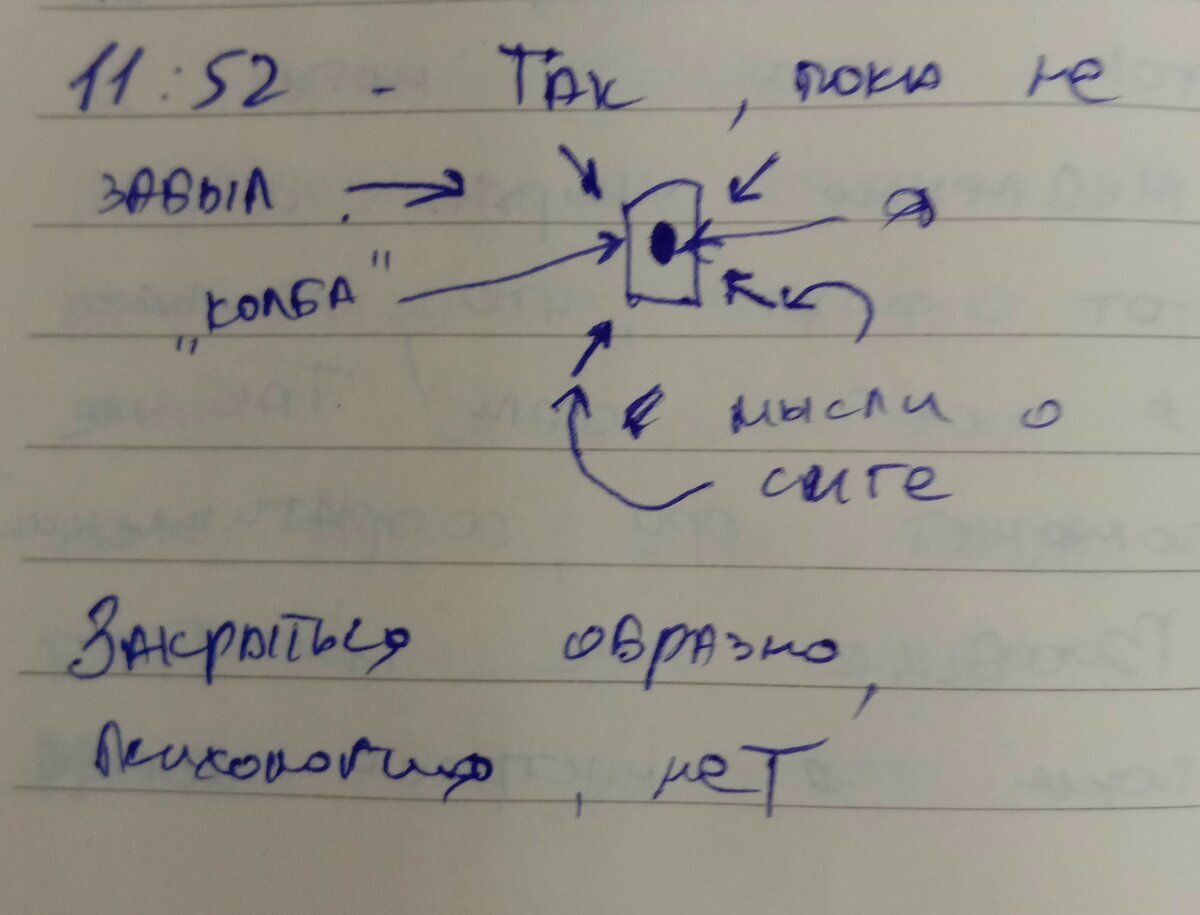 11:52 - Так, пока не
забыл
Я
„КОЛБА"
мысли о
сиге
Закрыться образно,
Психология, нет